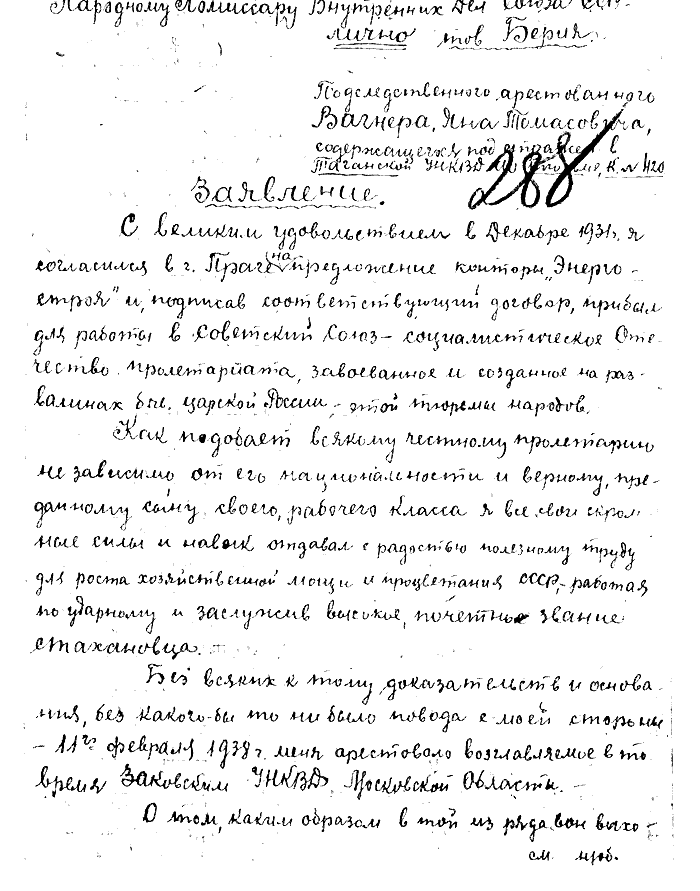 Народному Комиссару Внутренних Дел Союза ССР
лично тов Берия.
Подследственного арестованного
Вагнера, Яна Томасовича,
содержащегося под стражей в
Таганской УНКВД МО тюрьме, К. № 420
288
Заявление.
С великим удовольствием в Декабре 1931г. я
согласился в г. Праге на предложение конторы „Энерго-
строя" и, подписав соответствующий договор, прибыл
для работы в Советский Союз - социалистическое Оте-
чество пролетариата, завоеванное и созданное на раз-
валинах быв. царской России - этой тюремы народов.
Как подобает всякому честному пролетарию
не зависимо от его национальности и верному, пре-
данному сыну своего, рабочего класса я все свои скром-
ные силы и навык отдавал с радостью полезному труду
для роста хозяйственной мощи и процветания СССР, - работая
по ударному и заслужив высокое, почетное звание
стахановца.
Без всяких к тому доказательств и основа-
ния, без какого-бы то ни было повода с моей стороны
- 11го февраля 1938г. меня арестовало возглавляемое в то
время Заковским УНКВД Московской Области. -
О том, каким образом в той из ряда вон выхо-
см. #об.